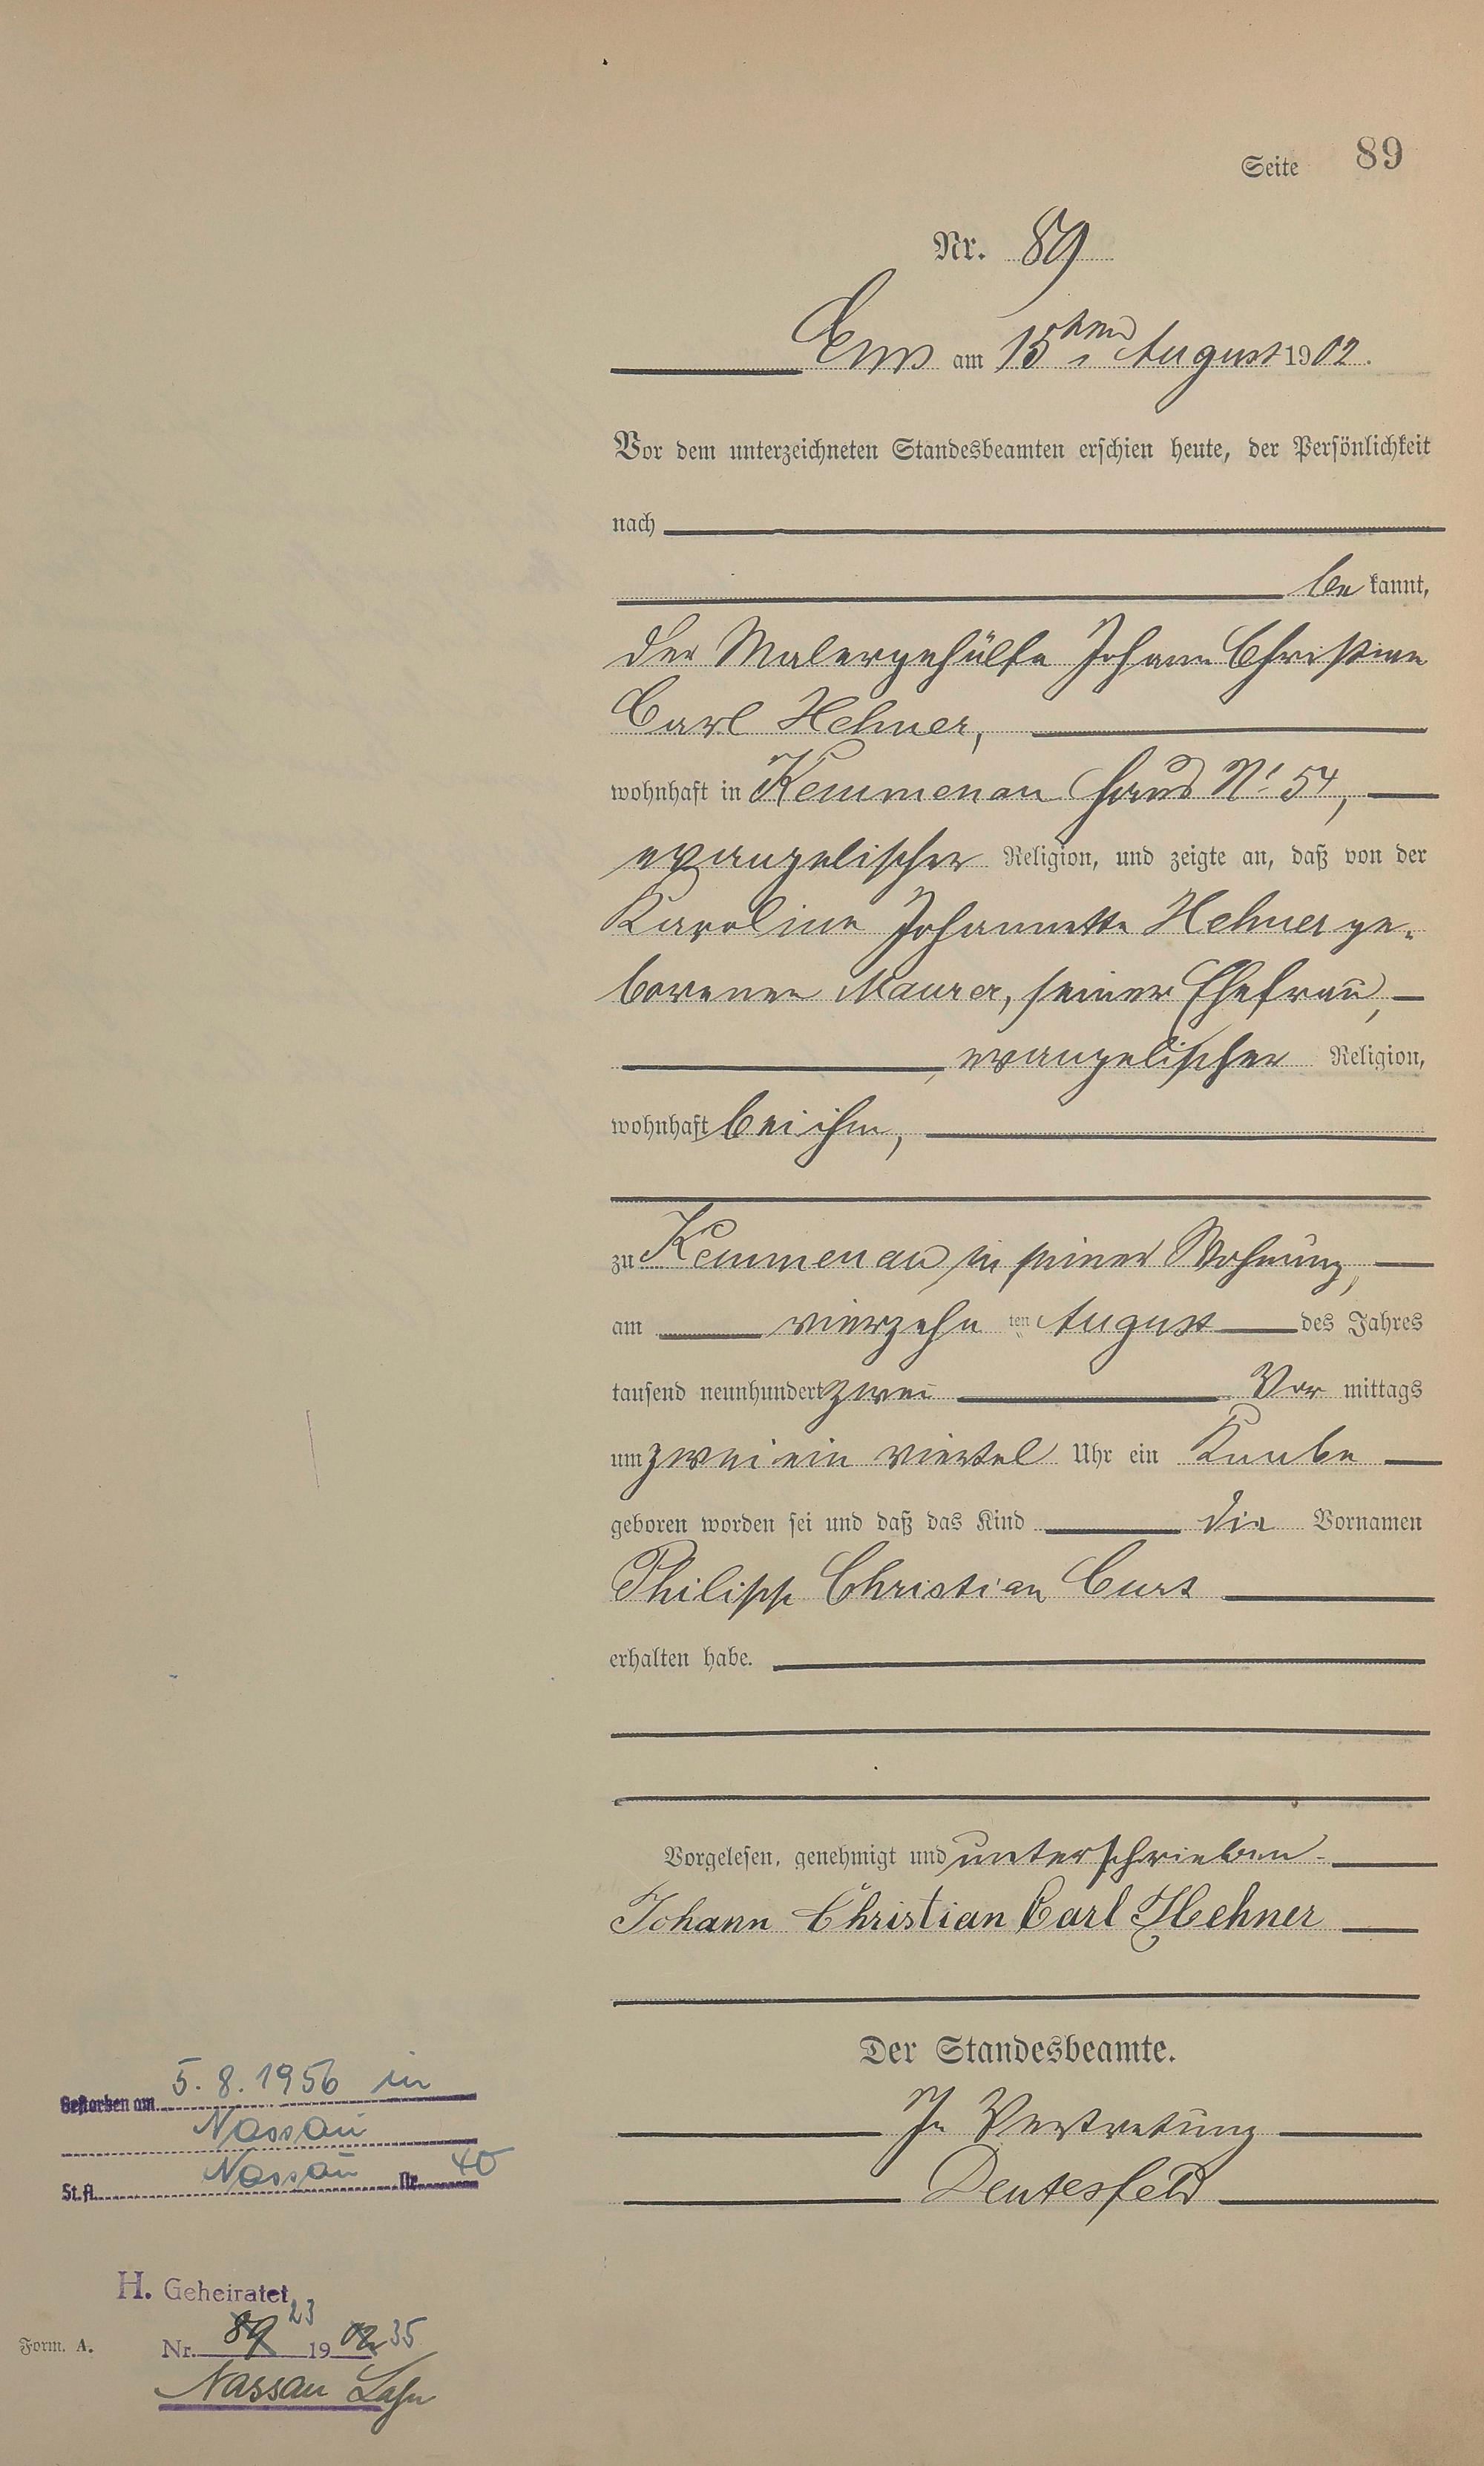 Seite 89
Nr. 89
Ems am 15ten August 1902.
Vor dem unterzeichneten Standesbeamten erschien heute, der Persönlichkeit
nach
be kannt,
der Malergehülfe Johann Christian
Carl Hehner,
wohnhaft in Kemmenau Haus No 54,
evangelischer Religion, und zeigte an, daß von der
Karoline Johannette Hehner ge-
borenen Maurer, seiner Ehefrau,
evangelischer Religion,
wohnhaft bei ihm,
zu Kemmenau in seiner Wohnung,
am vierzehn ten August des Jahres
tausend neunhundert zwei Vor mittags
um zwei ein viertel Uhr ein Knabe
geboren worden sei und daß das Kind die Vornamen
Philipp Christian Curt
erhalten habe.
Vorgelesen, genehmigt und unterschrieben.
Johann Christian Carl Hehner
Der Standesbeamte.
In Vertretung
Deutesfeld
Gestorben am 5.8.1956 in
Nassau
St.A. Nassau Nr. 40
H. Geheiratet
23
Nr. 89 1902 35
Nassau Lahn
Form. A.